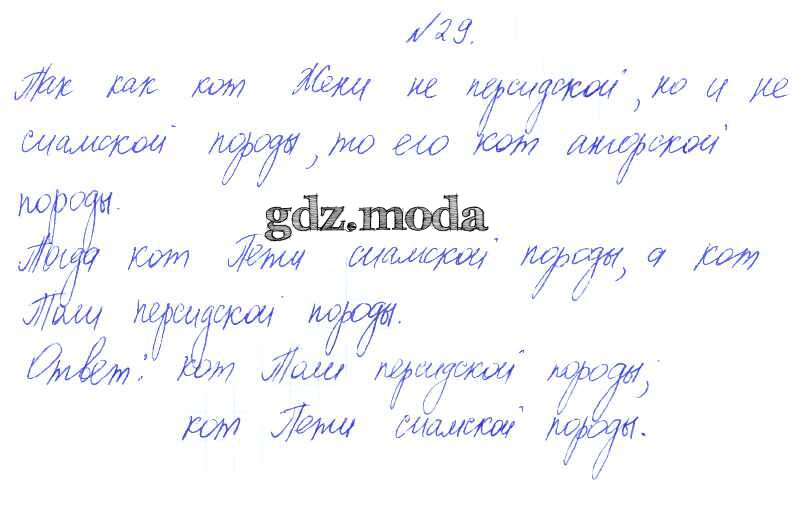 №29.
Так как кот Жени не персидской, но и не
сиамской породы, то его кот ангорской
породы.
gdz.moda
Тогда кот Пети сиамской породы, а кот
Толи персидской породы.
Ответ: кот Толи персидской породы;
кот Пети сиамской породы.